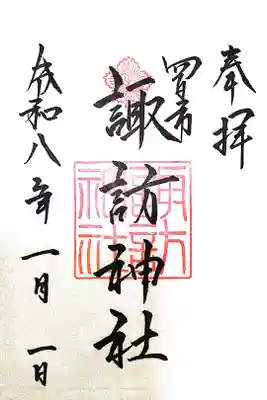 奉拝
四日市
諏訪神社
令和八年 一月 一日